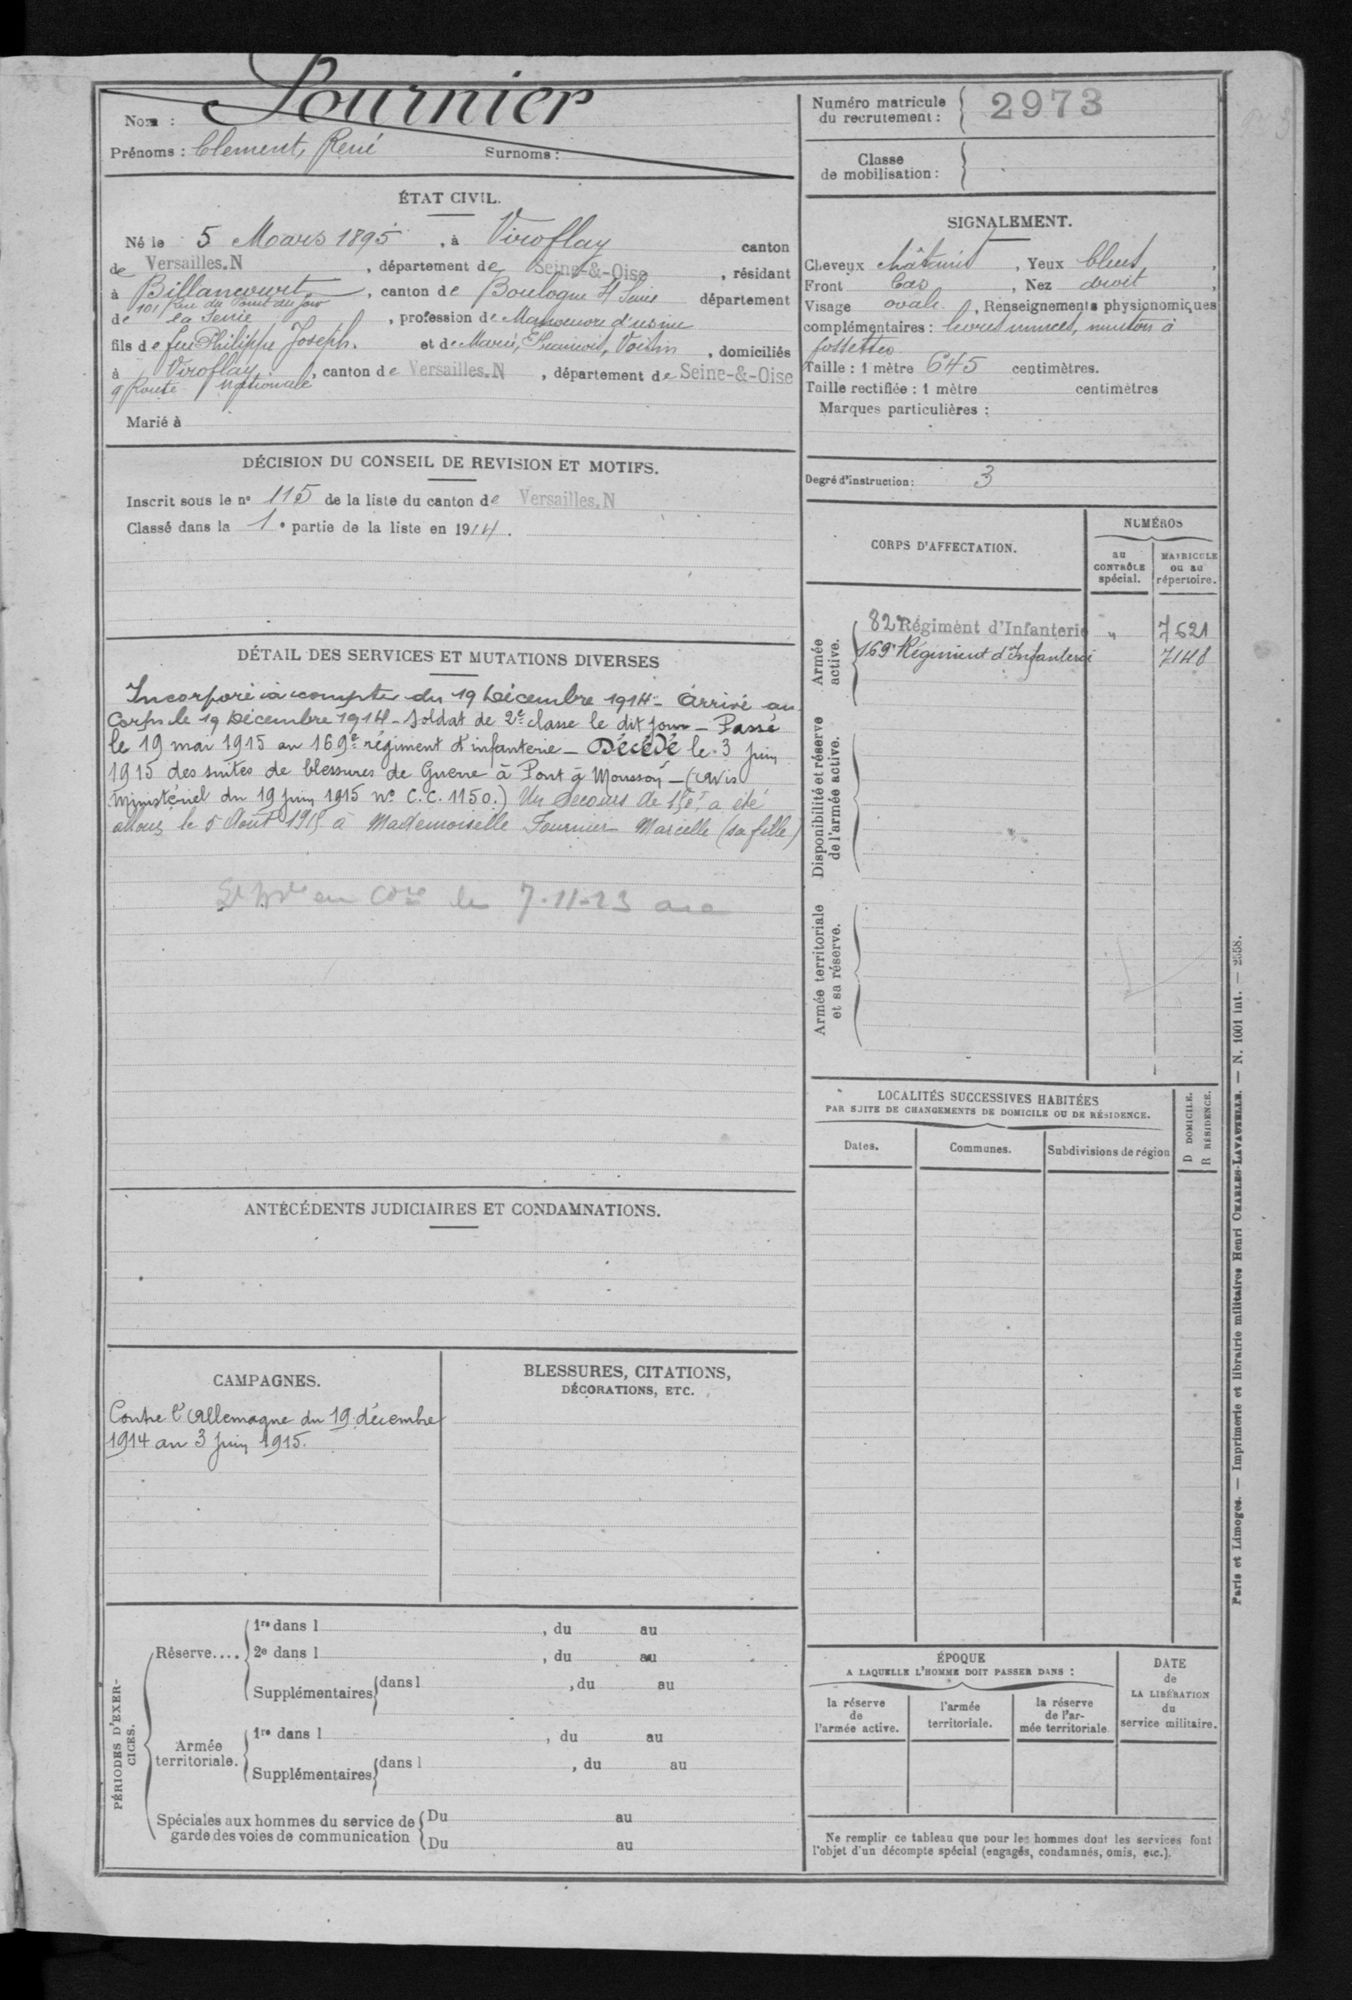 Nom : Fournier
Prénoms : Clement, René Surnoms :
ÉTAT CIVIL.
Né le 5 Mars 1895, à Viroflay canton
de Versailles.N, département de Seine-&-Oise, résidant
à Billancourt, canton de Boulogne s/ Seine département
101 Rue du Point du jour
de la Seine, profession de Manoeuvre d'usine
fils de feu Philippe Joseph. et de Marie, Voisin, domiciliés
à Viroflay, canton de Versailles.N, département de Seine-&-Oise
9 Route Nationale
Marié à
DÉCISION DU CONSEIL DE REVISION ET MOTIFS.
Inscrit sous le n° 115 de la liste du canton de Versailles.N
Classé dans la 1e partie de la liste en 1914.
DÉTAIL DES SERVICES ET MUTATIONS DIVERSES
Incorporé à compter du 19 Décembre 1914 - Arrivé au
Corps le 19 Décembre 1914 - Soldat de 2e classe le dit jour - Passé
le 19 mai 1915 au 169e régiment d'infanterie - Décédé le 3 Juin
1915 des suites de blessures de Guerre à Pont à Mousson - (Avis
Ministériel du 19 Juin 1915 N° C.C. 1150.) Un Secours de 150f a été
alloué le 5 Août 1915 à Mademoiselle Fournier Marcelle (sa fille)
en le 7-11-23
ANTÉCÉDENTS JUDICIAIRES ET CONDAMNATIONS.
CAMPAGNES.
Contre l'Allemagne du 19 décembre
1914 au 3 Juin 1915.
BLESSURES, CITATIONS,
DÉCORATIONS, ETC.
PÉRIODES D'EXERCICES.
Réserve....
1re dans l, du au
2e dans l, du au
Supplémentaires dans l, du au
Armée
territoriale.
1re dans l, du au
Supplémentaires dans l, du au
Spéciales aux hommes du service de
garde des voies de communication
Du au
Du au
Numéro matricule
du recrutement : 2973
Classe
de mobilisation :
SIGNALEMENT.
Cheveux châtains, Yeux bleus,
Front bas, Nez droit,
Visage ovale, Renseignements physionomiques
complémentaires : levres minces, menton à
fossettes
Taille : 1 mètre 645 centimètres.
Taille rectifiée : 1 mètre centimètres
Marques particulières :
Degré d'instruction : 3
CORPS D'AFFECTATION.
NUMÉROS
au
CONTRÔLE
spécial.
MATRICULE
ou au
répertoire.
Armée
active.
82e Régiment d'Infanterie " 7621
169e Régiment d'Infanterie 7148
Disponibilité et réserve
de l'armée active.
Armée territoriale
et sa réserve.
LOCALITÉS SUCCESSIVES HABITÉES
PAR SUITE DE CHANGEMENTS DE DOMICILE OU DE RÉSIDENCE.
D DOMICILE.
R RÉSIDENCE.
Dates. Communes. Subdivisions de région
ÉPOQUE
A LAQUELLE L'HOMME DOIT PASSER DANS :
la réserve
de
l'armée active.
l'armée
territoriale.
la réserve
de l'ar-
mée territoriale
DATE
de
LA LIBÉRATION
du
service militaire.
Ne remplir ce tableau que pour les hommes dont les services font
l'objet d'un décompte spécial (engagés, condamnés, omis, etc.).
Paris et Limoges. — Imprimerie et librairie militaires Henri CHARLES-LAVAUZELLE. — N. 1001 int. — 2558.